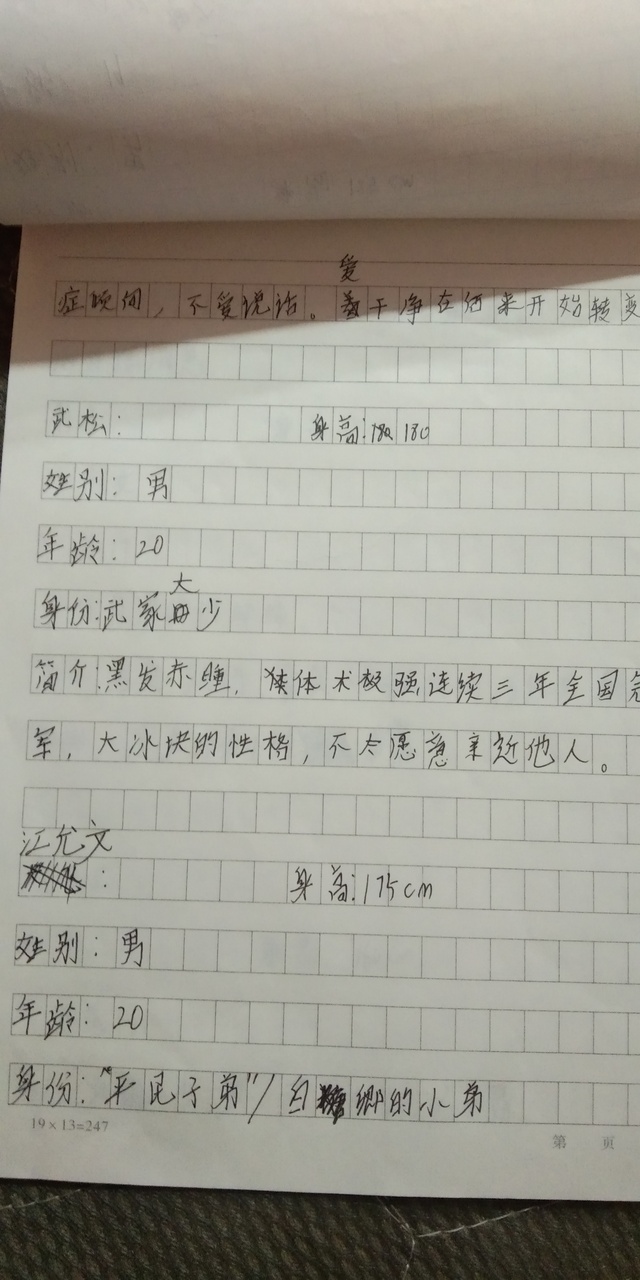 爱
症期间，不爱说话。爱干净在何来开始转变
武松： 身高：180 180
姓别：男
年龄：20
大
身份：武家少
简介：黑发赤瞳，体术极强，连续三年全国冠
军，大冰块的性格，不太愿意亲近他人。
江允文
： 身高：175cm
姓别：男
年龄：20
身份："平民子弟"/ 乡的小弟
19×13=247
第 页